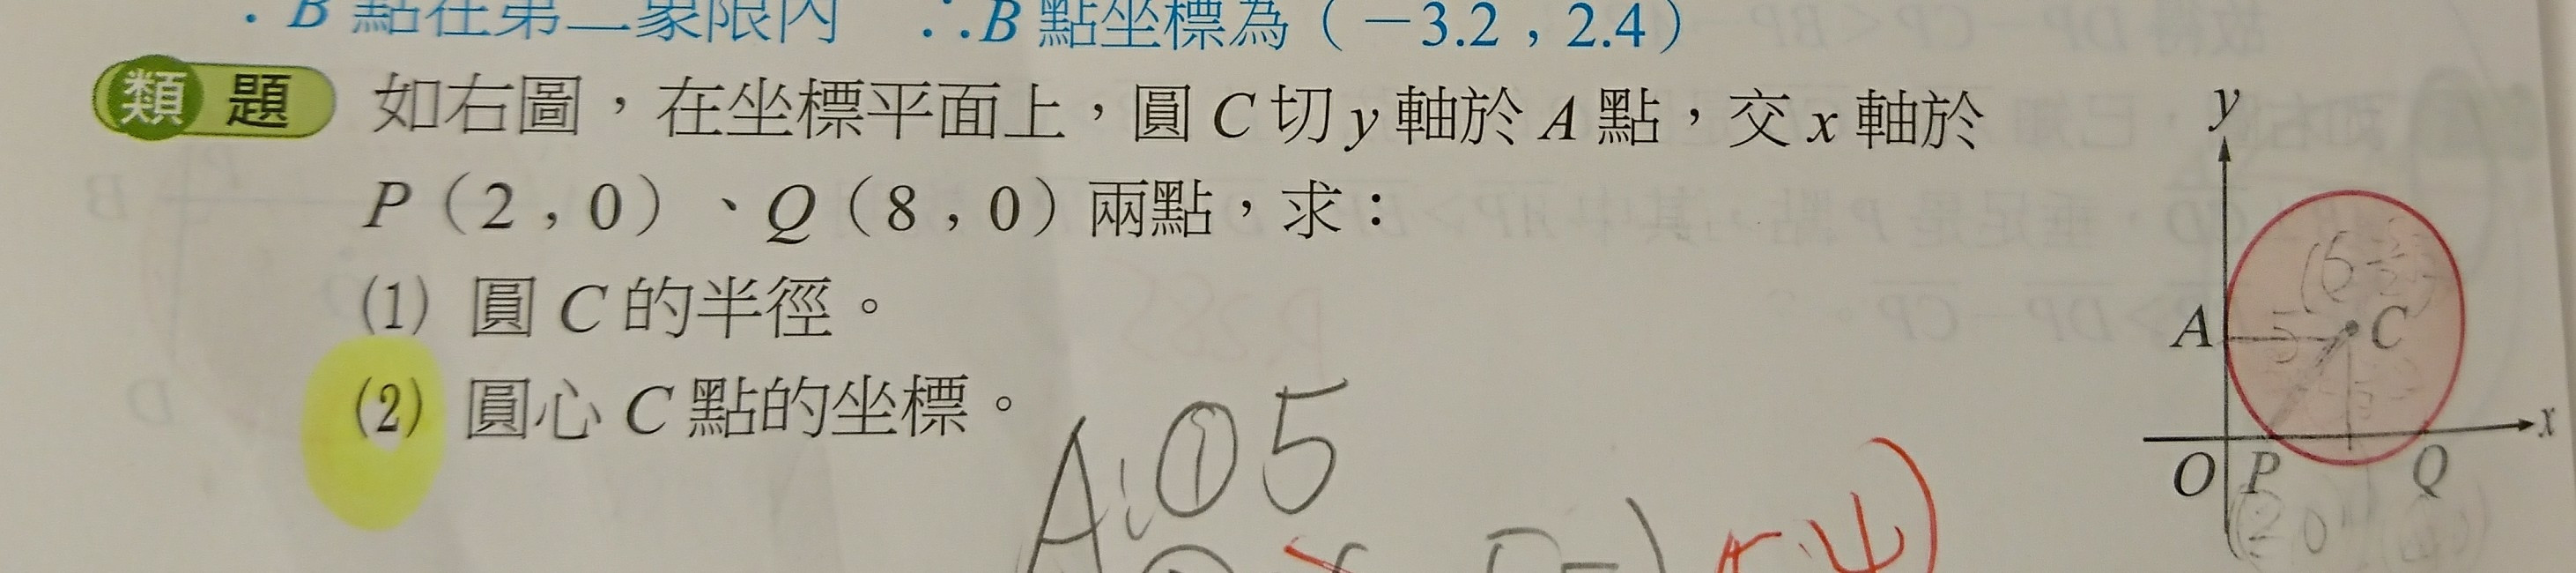 B 點在第二象限內 ∴B 點坐標為（－3.2，2.4）
類題 如右圖，在坐標平面上，圓 C 切 y 軸於 A 點，交 x 軸於
P（2，0）、Q（8，0）兩點，求：
(1) 圓 C 的半徑。
(2) 圓心 C 點的坐標。
A: ① 5
y
A
5
C
O
P
Q
x